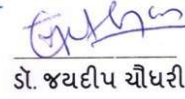 ડૉ. જયદીપ ચૌધરી